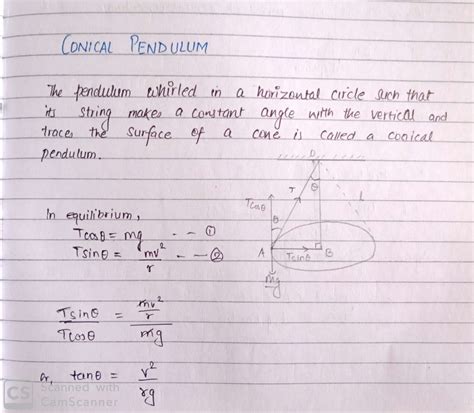 CONICAL PENDULUM
The pendulum whirled in a horizontal circle such that
its string makes a constant angle with the vertical and
traces the surface of a cone is called a conical
pendulum.
D
θ
T
L
Tcosθ
θ
A
Tsinθ
B
mg
In equilibrium,
Tcosθ = mg -- ①
Tsinθ = mv²/r -- ②
Tsinθ/Tcosθ = mv²/r/mg
Or, tanθ = v²/rg
CS Scanned with
CamScanner